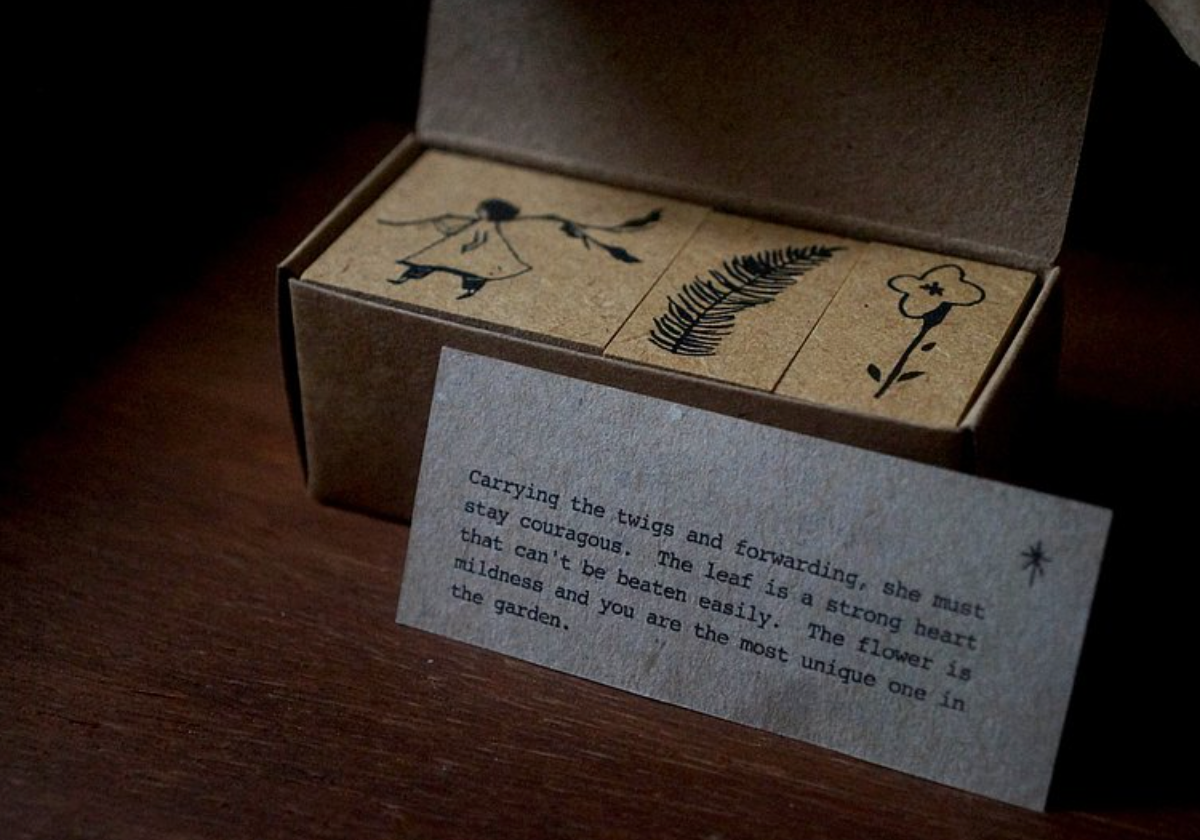 Carrying the twigs and forwarding, she must
stay couragous.  The leaf is a strong heart
that can't be beaten easily.  The flower is
mildness and you are the most unique one in
the garden.